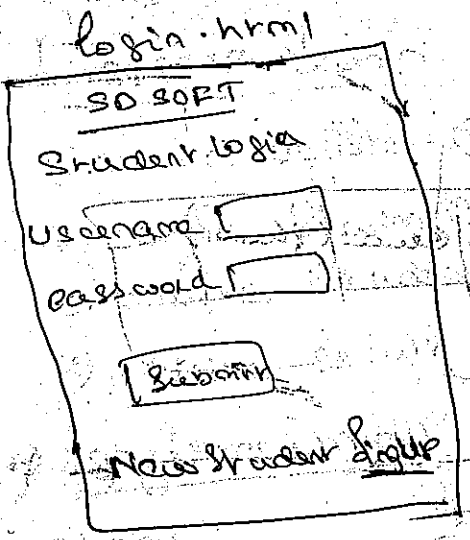 login.html
SD SOFT
Student Login
username
password
Submit
New Student SignUp